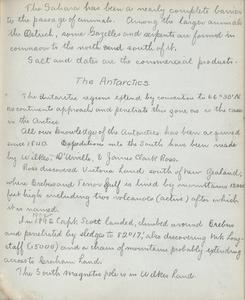 The Sahara has been a nearly complete barrier
to the passage of animals. Among the larger animals
the Ostrich, some Gazelles and serpents are found in
common to the north and south of it.
Salt and dates are the commercial products.
The Antarctics
The Antarctic regions extend by convention to 66°30' N
as continents approach and penetrate this zone as is the case
in the Arctic.
All our knowledge of the Antarctics has been acquired
since 1840. Expeditions into the South have been made
by Wilkes, D'Urville, & James Clark Ross.
Ross discovered Victoria Land south of New Zealand,
where Erebus and Terror Gulf is lined by mountains
feet high including two volcanoes (active) after which
it is named.
In Capt. Scott landed, climbed around Erebus
and penetrated by sledges to 82°17', also discovering Mt. Long-
staff (15000) and a chain of mountains probably extending
across to Graham Land.
The South magnetic pole is in Wilkes Land.